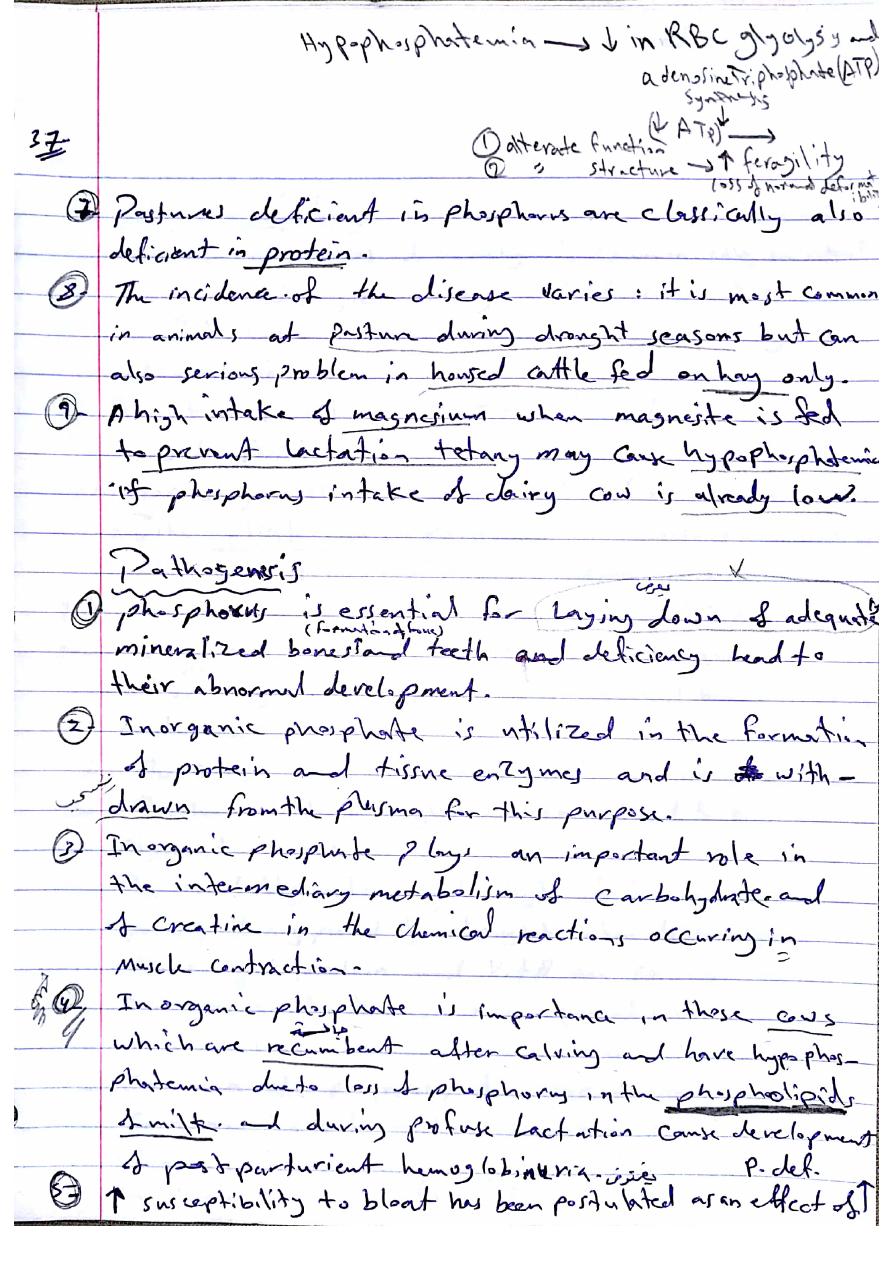 Hypophosphatemia → ↓ in RBC glyolysy and
adenosine Triphosphate (ATP)
synthesis
(↓ ATP) ↓ →
37
① alterate function
② " structure → ↑ feragility
(loss of normal deformatibility
7- Pastures deficient in phosphorus are classically also
deficient in protein.
8- The incidence of the disease varies: it is most common
in animals at pasture during drought seasons but can
also serious problem in housed cattle fed on hay only.
9- A high intake of magnesium when magnesite is fed
to prevent lactation tetany may cause hypophosphatemia
if phosphorus intake of dairy cow is already low.
Pathogenesis
1- phosphorus is essential for Laying down of adequate
(formation of bone)
mineralized bones and teeth and deficiency lead to
their abnormal development.
2- Inorganic phosphate is utilized in the formation
of protein and tissue enzymes and is with-
drawn from the plasma for this purpose.
3- Inorganic phosphate plays an important role in
the intermediary metabolism of carbohydrate and
of creatine in the chemical reactions occuring in
Muscle contraction.
4- Inorganic phosphate is importanca in those cows
which are recumbent after calving and have hypophos-
phatemia due to loss of phosphorus in the phospholipids
of milk. and during profuse Lactation cause development
of post parturient hemoglobinuria. يفترض P. def.
5- ↑ susceptibility to bloat has been postulated as an effect of ↑